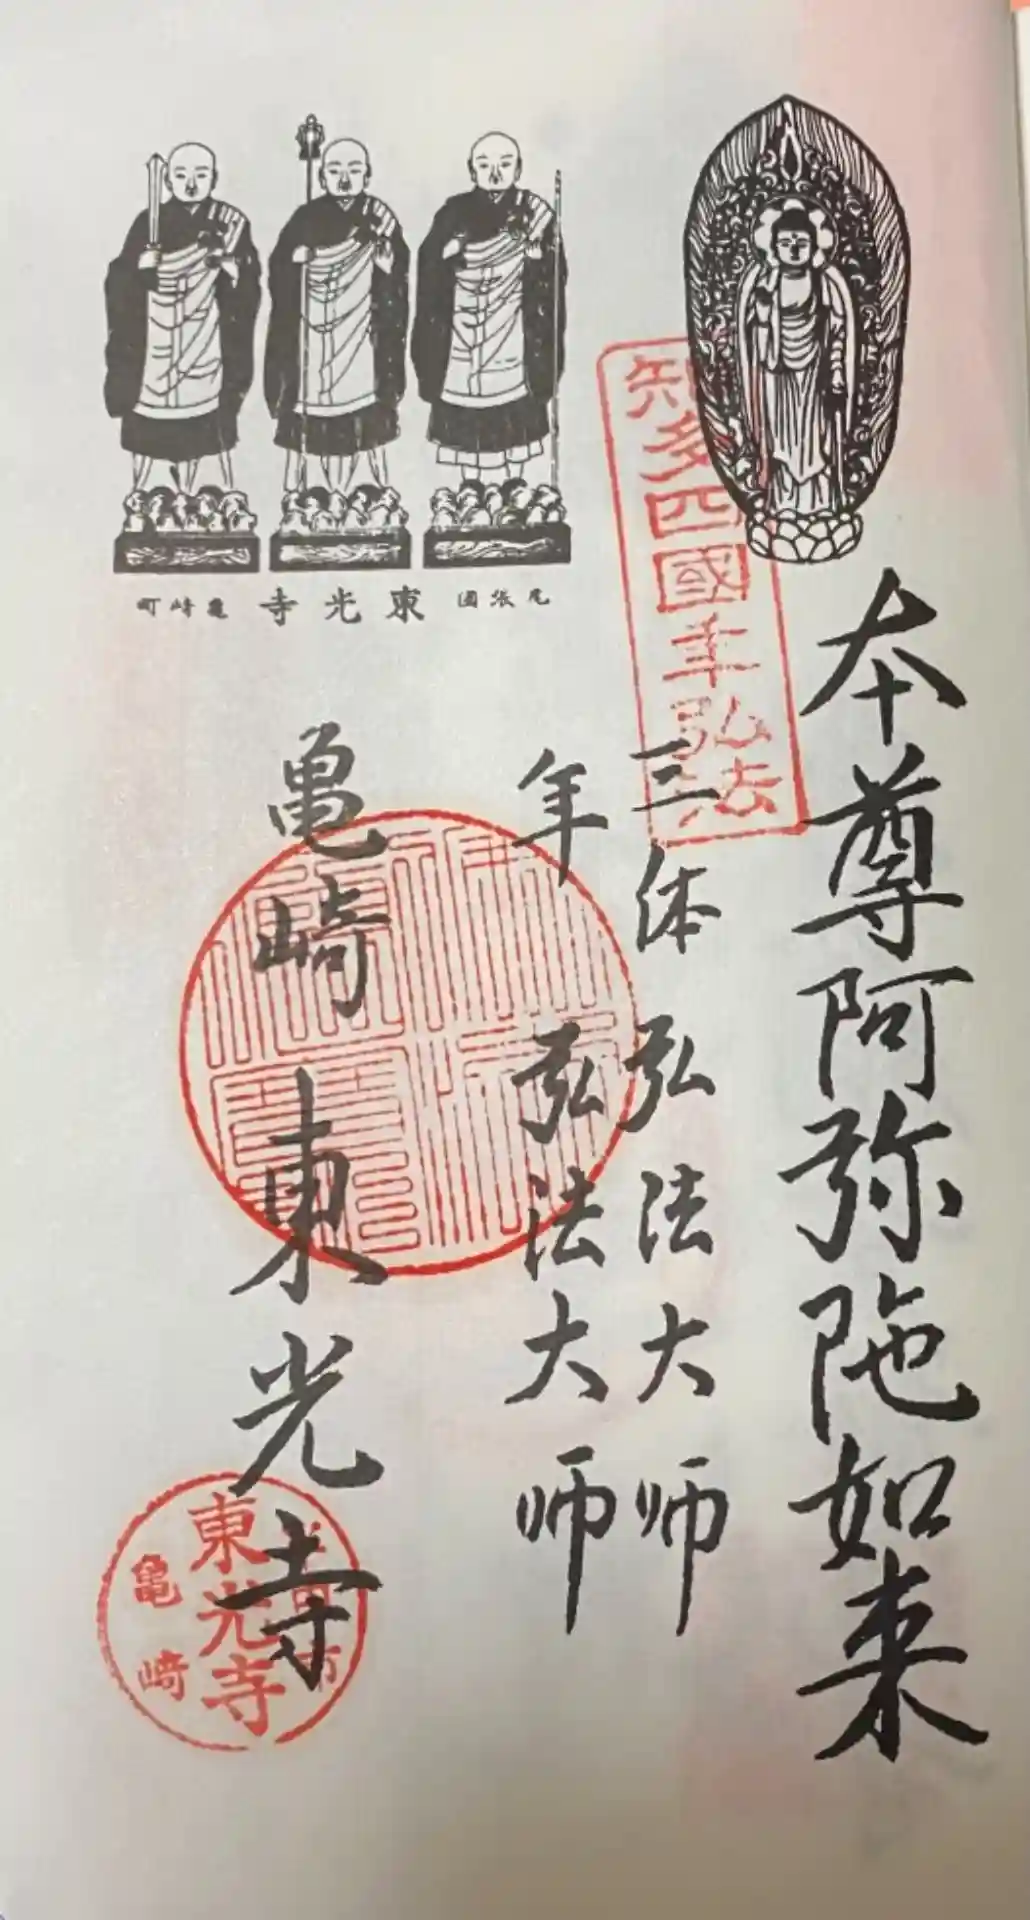 本尊阿弥陀如来
知多四國年弘法
三体 弘法大师
年 弘法大师
尾張國 東光寺 亀崎町
亀崎 東光寺
東光寺
亀崎